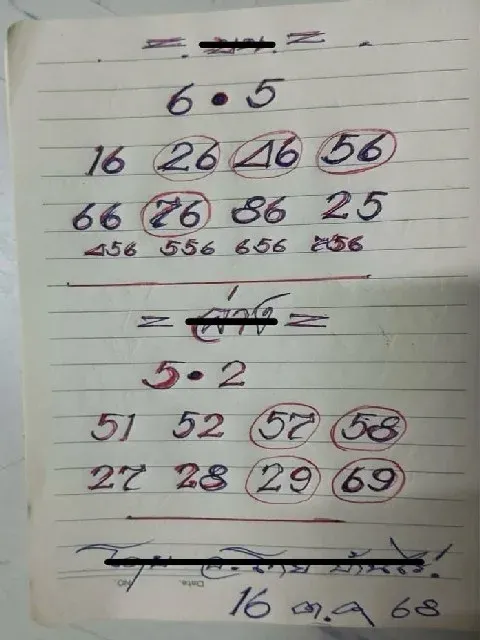 = บน =
6 • 5
16 26 46 56
66 76 86 25
456 556 656 756
= ล่าง =
5 • 2
51 52 57 58
27 28 29 69
Date. No.
16 ต.ค 68